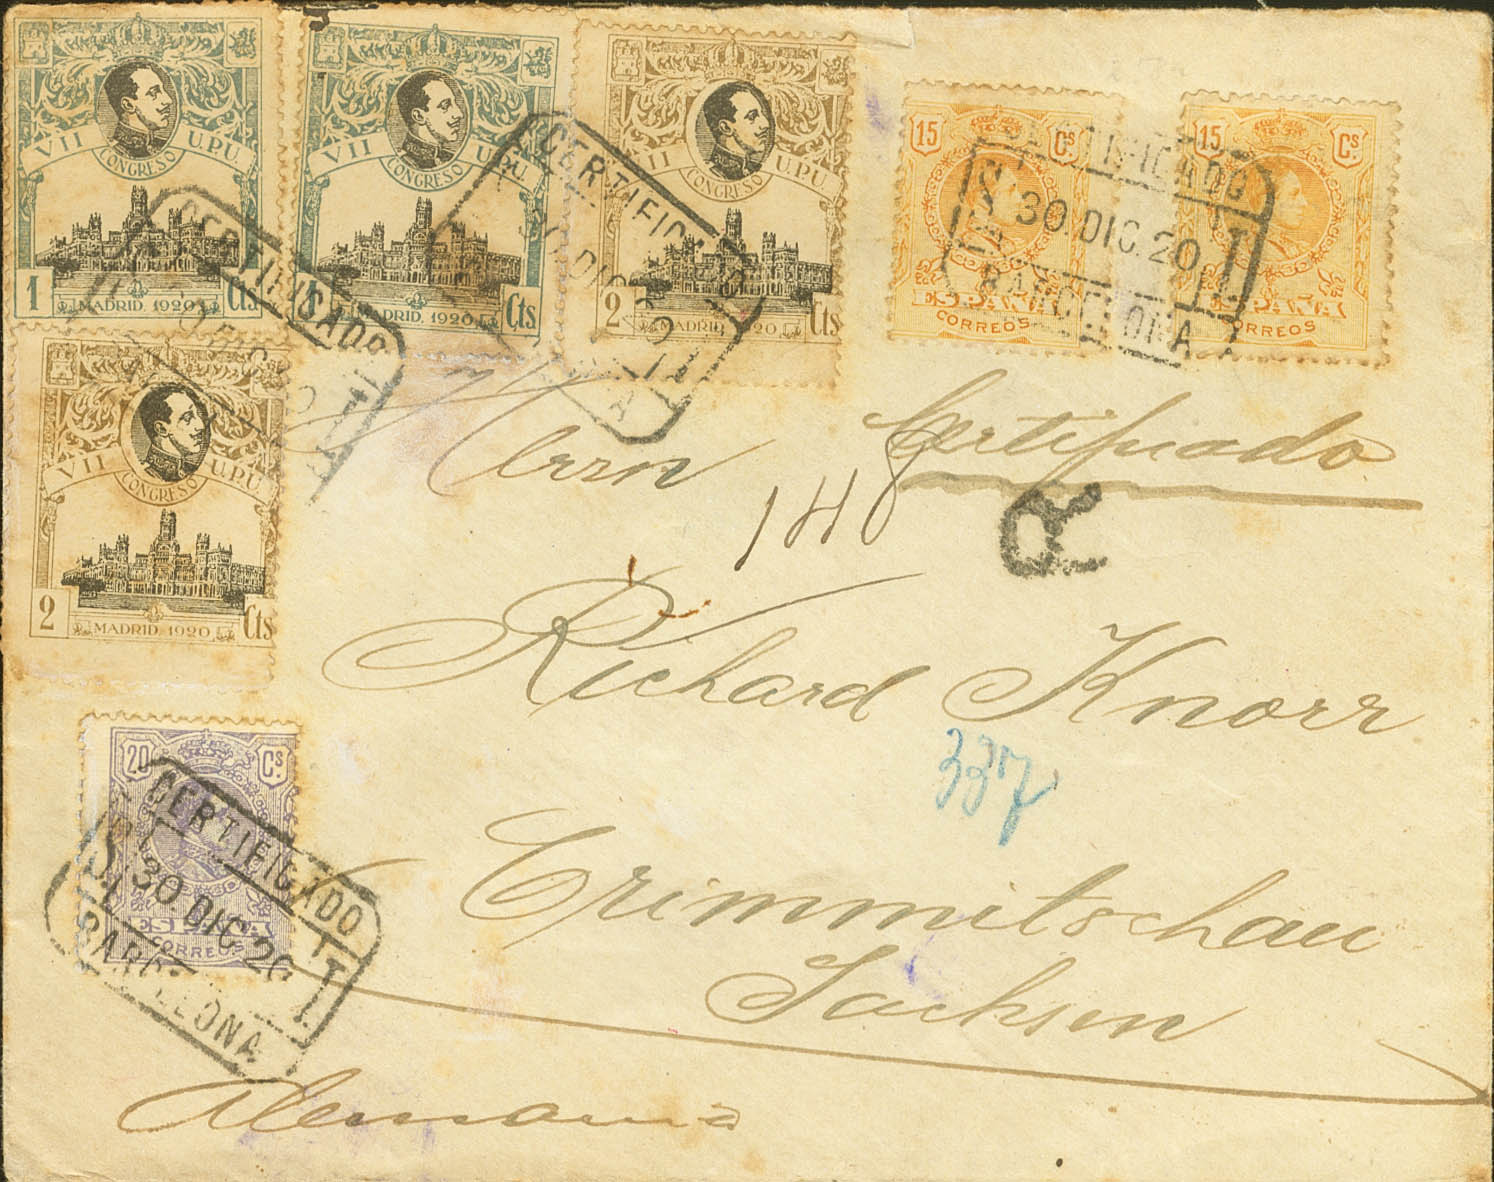 VII CONGRESO U.P.U.
1 MADRID 1920 Cts
VII CONGRESO U.P.U.
1 MADRID 1920 Cts
VII CONGRESO U.P.U.
2 MADRID 1920 Cts
15 Cs
ESPAÑA
CORREOS
15 Cs
ESPAÑA
CORREOS
CERTIFICADO
30.DIC.20
BARCELONA
CERTIFICADO
30 DIC 20
CERTIFICADO
30 DIC 20
VII CONGRESO U.P.U.
2 MADRID 1920 Cts
Certificado
Herrn
140
R
Richard Knorr
337
Crimmitschau
Sachsen
20 Cs
ESPAÑA
CORREOS
CERTIFICADO
30 DIC 20
BARCELONA
Alemania